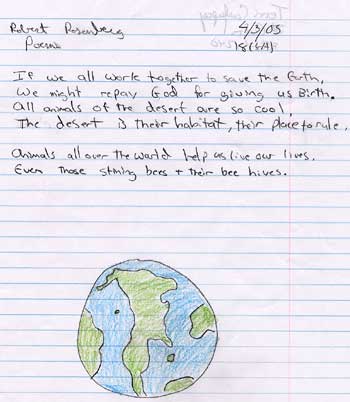 Robert Rosenberg 4/3/03
Poems
If we all work together to save the Earth,
We might repay God for giving us Birth.
All animals of the desert are so cool,
The desert is their habitat, their place to rule.
Animals all over the world help us live our lives,
Even those sting bees + their bee hives.